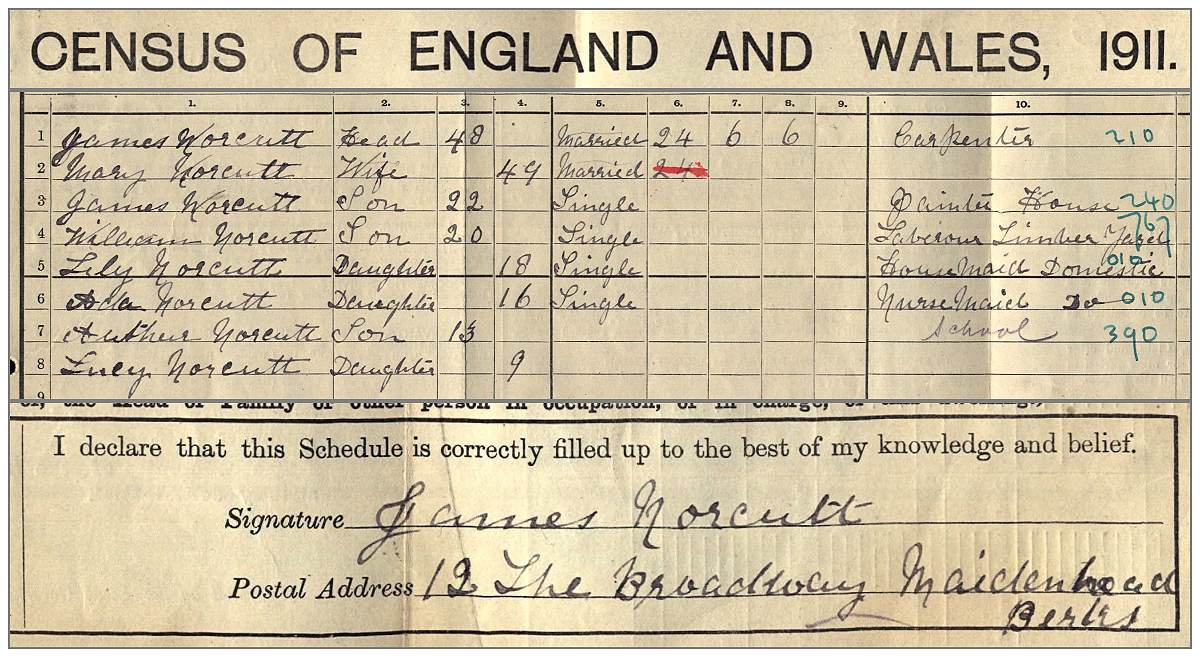 CENSUS OF ENGLAND AND WALES, 1911.
1. 2. 3. 4. 5. 6. 7. 8. 9. 10.
1 James Norcutt Head 48 Married 24 6 6 Carpenter 210
2 Mary Norcutt Wife 49 Married 24
3 James Norcutt Son 22 Single Painter House 240
4 William Norcutt Son 20 Single Laberour Timber Yard 767
5 Lily Norcutt Daughter 18 Single HouseMaid Domestic 010
6 Ada Norcutt Daughter 16 Single NurseMaid Do 010
7 Authur Norcutt Son 13 School 390
8 Lucy Norcutt Daughter 9
9
or, the Head of Family or other person in occupation, or in charge, of this dwelling.
I declare that this Schedule is correctly filled up to the best of my knowledge and belief.
Signature James Norcutt
Postal Address 12 The Broadway Maidenhead
Berks